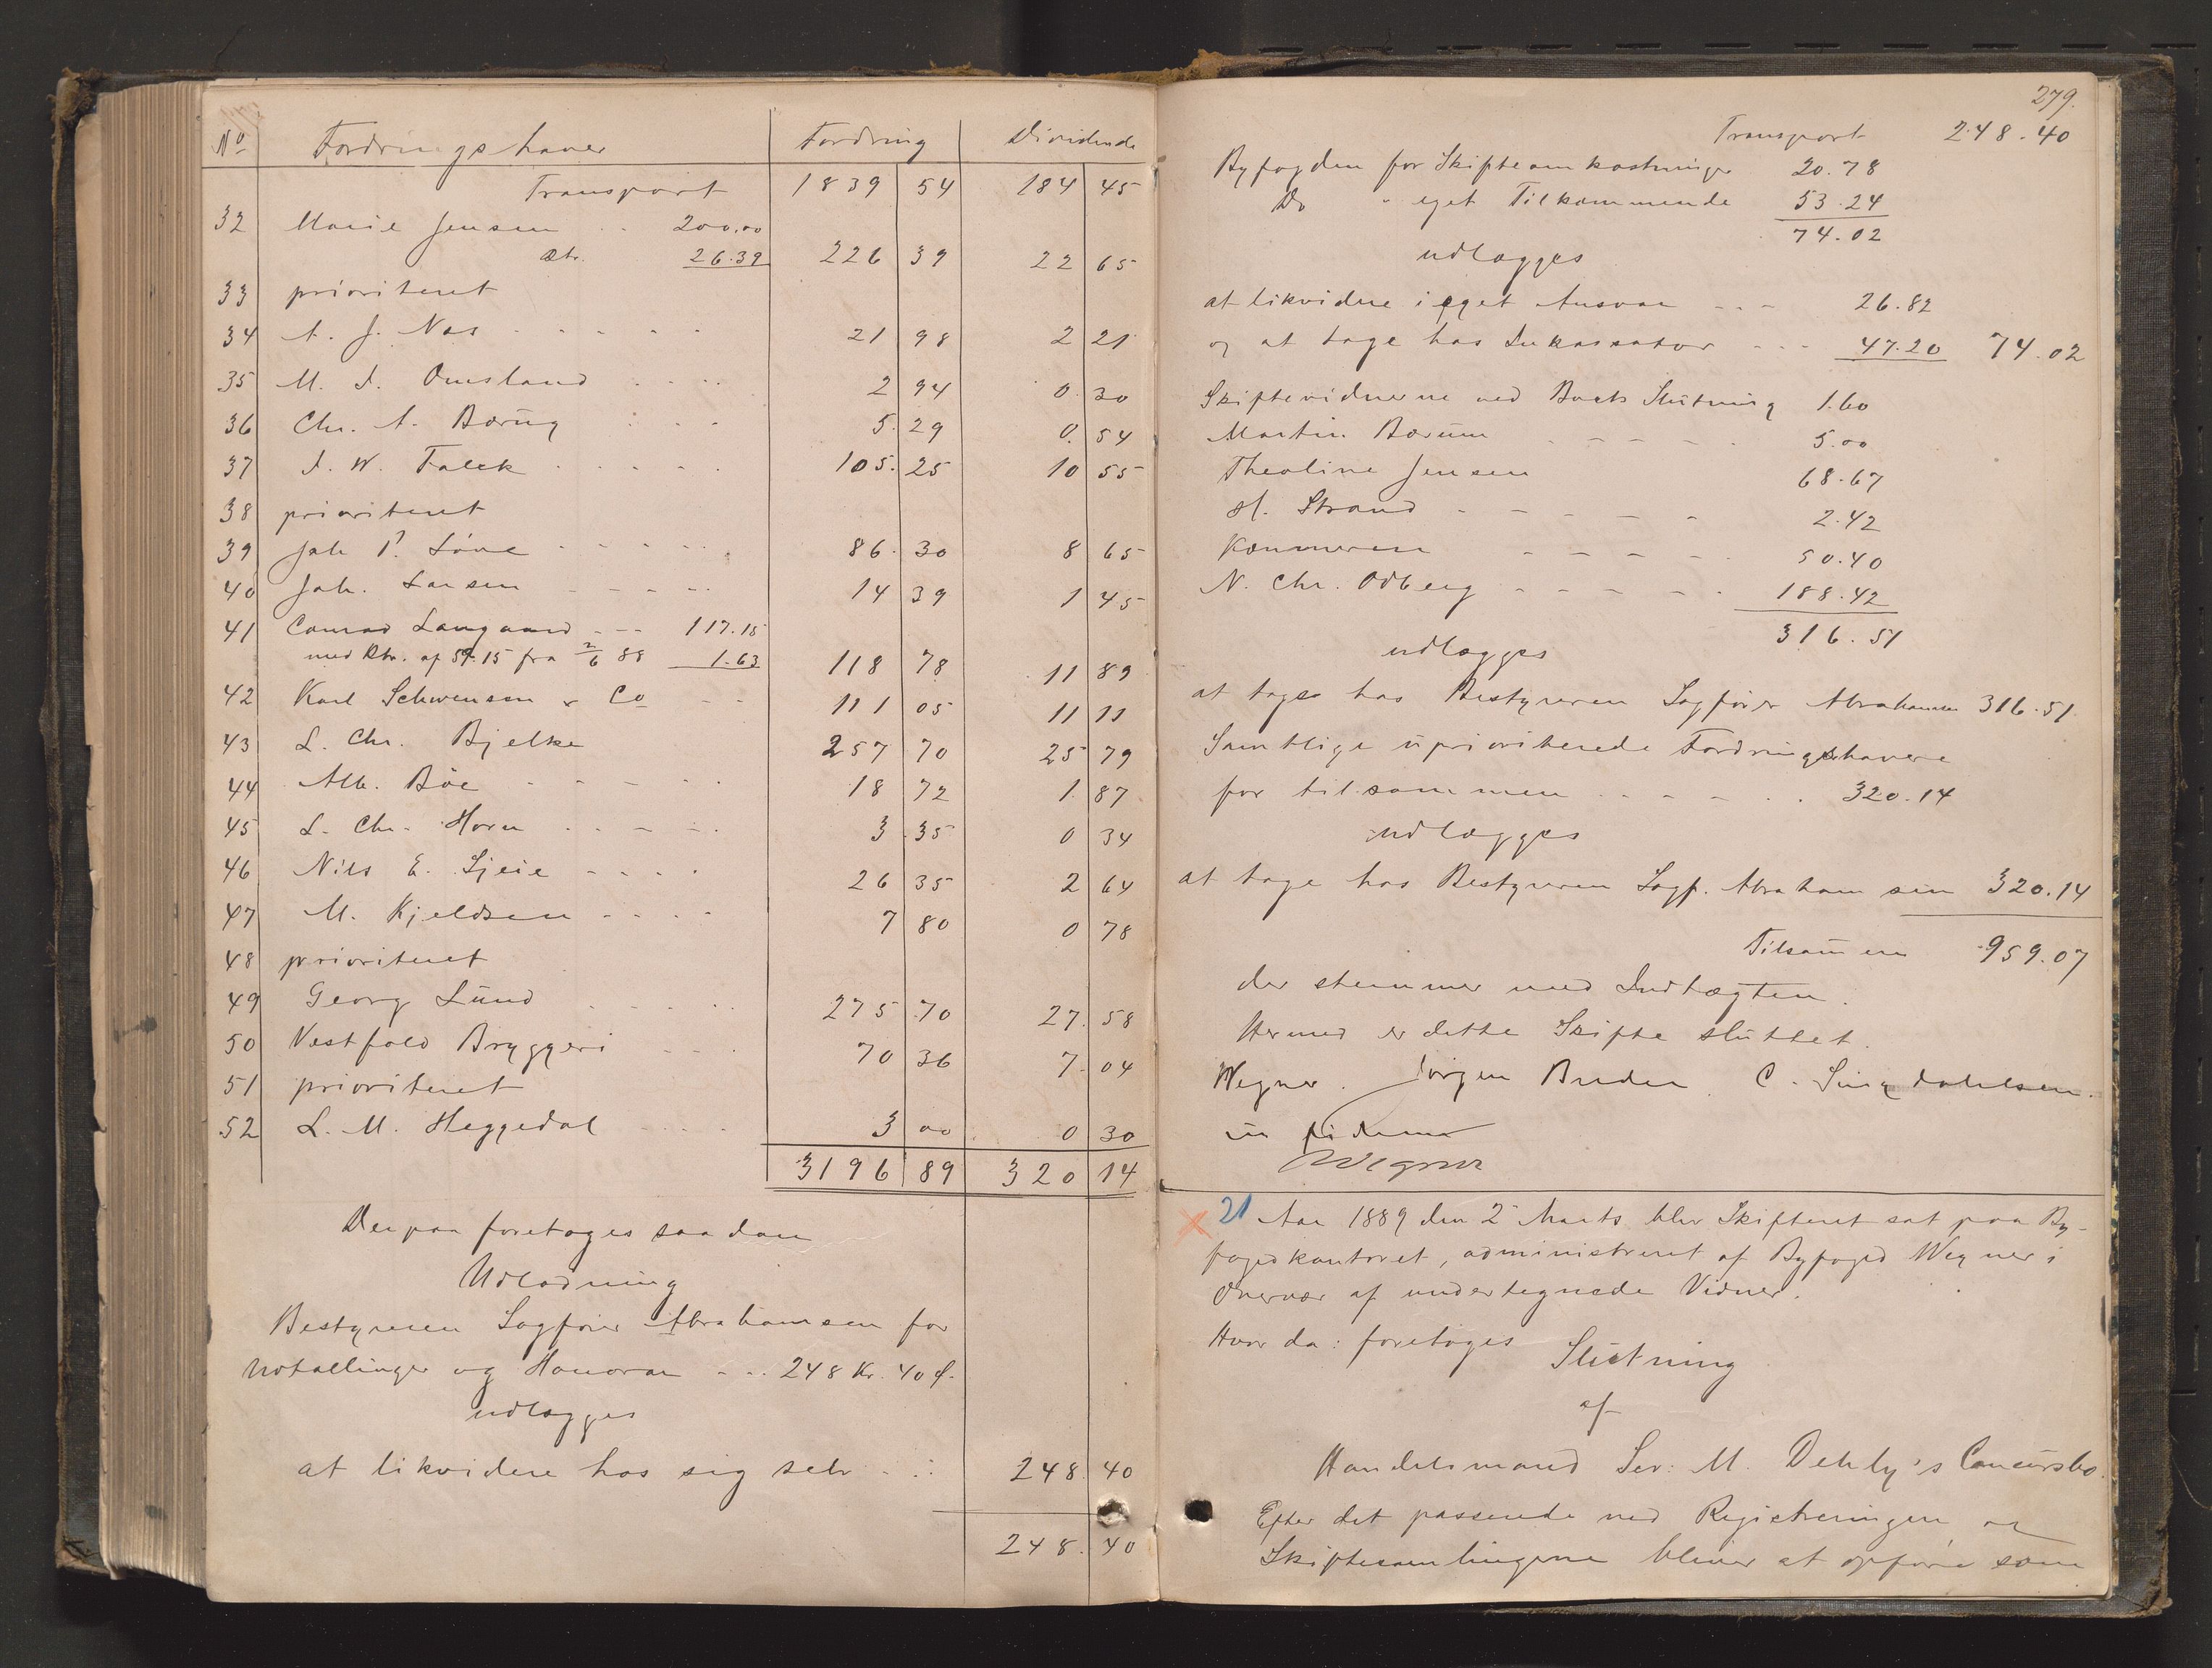 No Fordringshaver Fordring Dividende
Transport 1839 54 184 45
32 Marie Jensen 200.00
Rtr. 26.39 226 39 22 65
33 prioriteret
34 A. J. Næs 21 98 2 21
35 M. A. Omsland 2 94 0 30
36 Chr. A. Bærug 5.29 0.54
37 A. W. Falck 105.25 10 55
38 prioriteret
39 Joh P. Löve 86.30 8 65
40 Joh. Larsen 14 39 1 45
41 Conrad Langaard 117.15
med Rtr. af 59.15 fra 2/6 88 1.63 118 78 11 89
42 Karl Schwensen & Co 111 05 11 11
43 L. Chr. Bjelke 257 70 25 79
44 Alb. Böe 18 72 1 87
45 L. Chr. Horn 3.35 0 34
46 Nils E. Sjeie 26 35 2 64
47 M. Kjeldsen 7 80 0 78
48 prioriteret
49 Georg Lund 275.70 27.58
50 Vestfold Bryggeri 70 36 7.04
51 prioriteret
52 L. M. Heggedal 3 00 0 30
3196 89 320 14
Derpaa foretoges saadan
Udlodning
Bestyreren Sagfører Abrahamsen for
Udtællinger og Honorar - .. 248 Kr. 40 Ø.
udlægges
at likvidere hos sig selv 248.40
248.40
279.
Transport 248.40
Byfogden for Skifteomkostninger 20.78
Do " eget Tilkommende 53.24
74.02
udlægges
at likvidere i eget Ansvar - - - 26.82
og at tage hos Inkassator - - - 47.20 74.02
Skiftevidnerne ved Boets Slutning 1.60
Martin Bærum 5.00
Theoline Jensen 68.67
H. Strand 2.42
Kæmneren 50.40
N. Chr. Odberg 188.42
316.51
udlægges
at tage hos Bestyreren Sagfører Abrahamsen 316.51
Samtlige uprioriterede Fordringshavere
for tilsammen 320.14
udlægges
at tage hos Bestyreren Sagf. Abrahamsen 320.14
Tilsammen 959.07
der stemmer med Indtægten.
Hermed er dette Skifte sluttet.
Wegner. Jörgen Bruden C.
in fidem
Wegner
21 Aar 1889 den 2 Marts blev Skifteret sat paa By-
fogedkontoret, administreret af Byfoged Wegner i
Overvær af undertegnede Vidner.
Hvor da: foretoges Slutning
af
Handelsmand Sev. M. Dehly's Concursbo.
Efter det passerede ved Registreringen og
Skiftesamlingerne bliver at opføre som